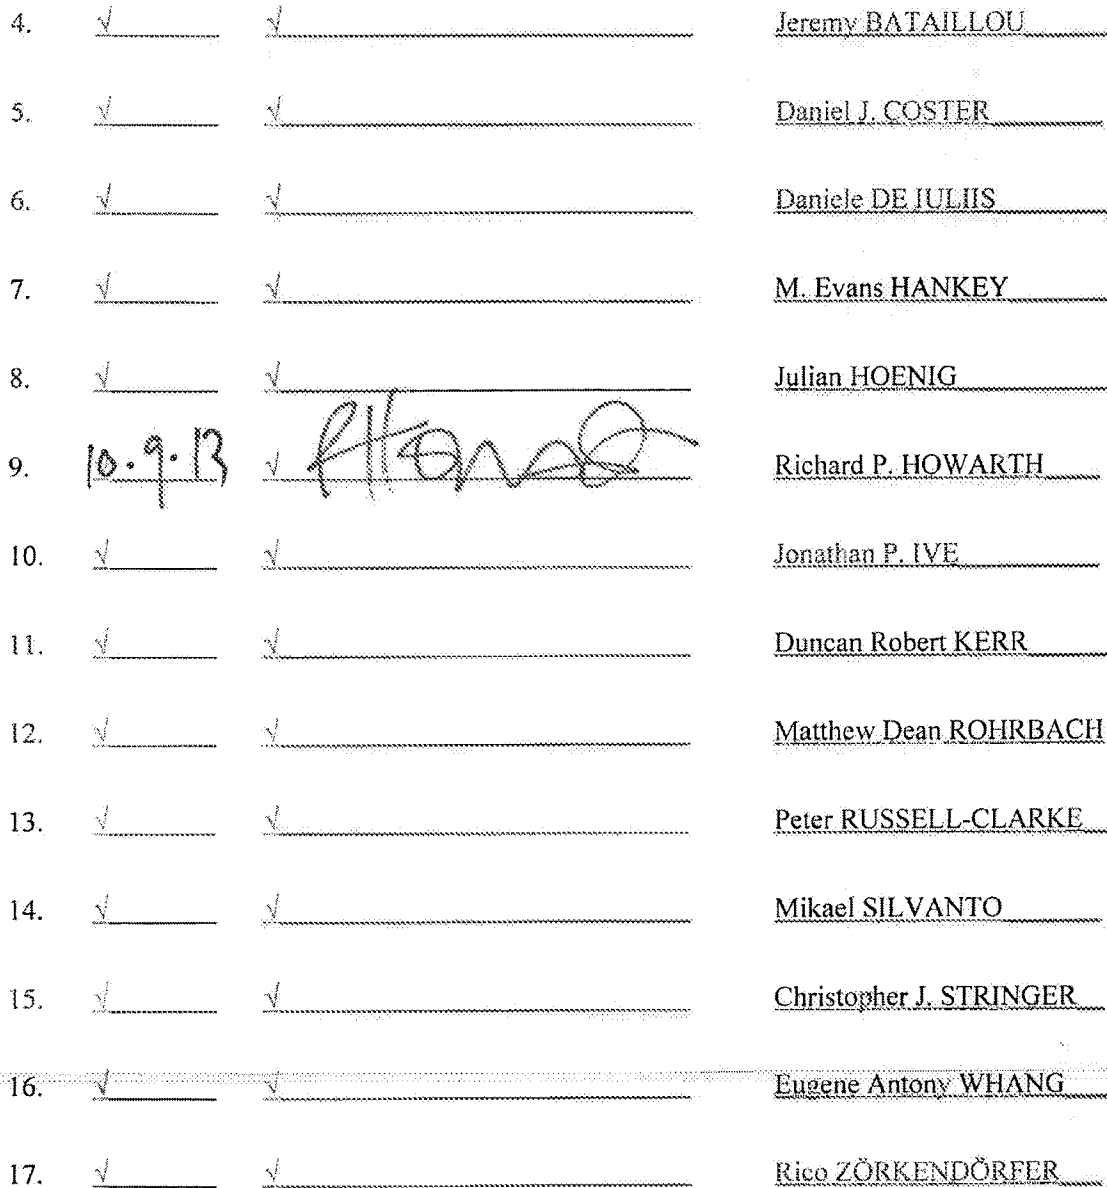 4. √ √ Jeremy BATAILLOU
5. √ √ Daniel J. COSTER
6. √ √ Daniele DE IULIIS
7. √ √ M. Evans HANKEY
8. √ √ Julian HOENIG
9. 10.9.13 √ Richard P. HOWARTH
10. √ √ Jonathan P. IVE
11. √ √ Duncan Robert KERR
12. √ √ Matthew Dean ROHRBACH
13. √ √ Peter RUSSELL-CLARKE
14. √ √ Mikael SILVANTO
15. √ √ Christopher J. STRINGER
16. √ √ Eugene Antony WHANG
17. √ √ Rico ZÖRKENDÖRFER